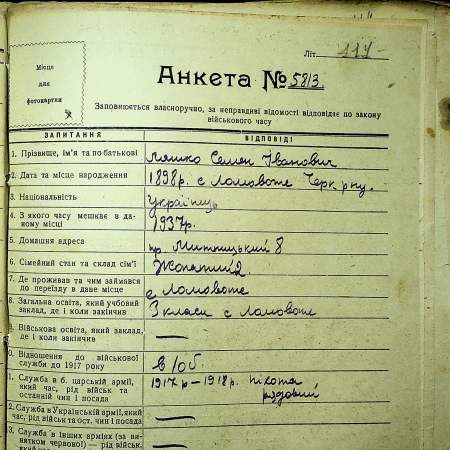 Літ. 111
Місце
для
фотокартки
Анкета № 5813.
Заповнюється власноручно, за неправдиві відомості відповідає по закону
військового часу
ЗАПИТАННЯ ВІДПОВІДІ
1. Прізвище, ім'я та по батькові Ляшко Семен Іванович
2. Дата та місце народження 1898р. с Ломовате Черк р-ну.
3. Національність Українець
4. З якого часу мешкає в да-
ному місці 1937р.
5. Домашня адреса пр. Митницький 8
6. Сімейний стан та склад сім'ї Жонатий 2.
7. Де проживав та чим займався
до переїзду в дане місце с Ломовате
8. Загальна освіта, який учбовий
заклад, де і коли закінчив 3 класи с Ломовате
9. Військова освіта, який заклад,
де і коли закінчив —
0. Відношення до військової
служби до 1917 року в/об.
1. Служба в б. царській армії,
який час, рід військ та
останній чин і посада 1917р – 1918р. піхота
рядовий
2. Служба в Українській армії, який
час, рід військ та ост. чин і посада —
3. Служба в інших арміях (за ви-
нятком червоної) — рід військ, —